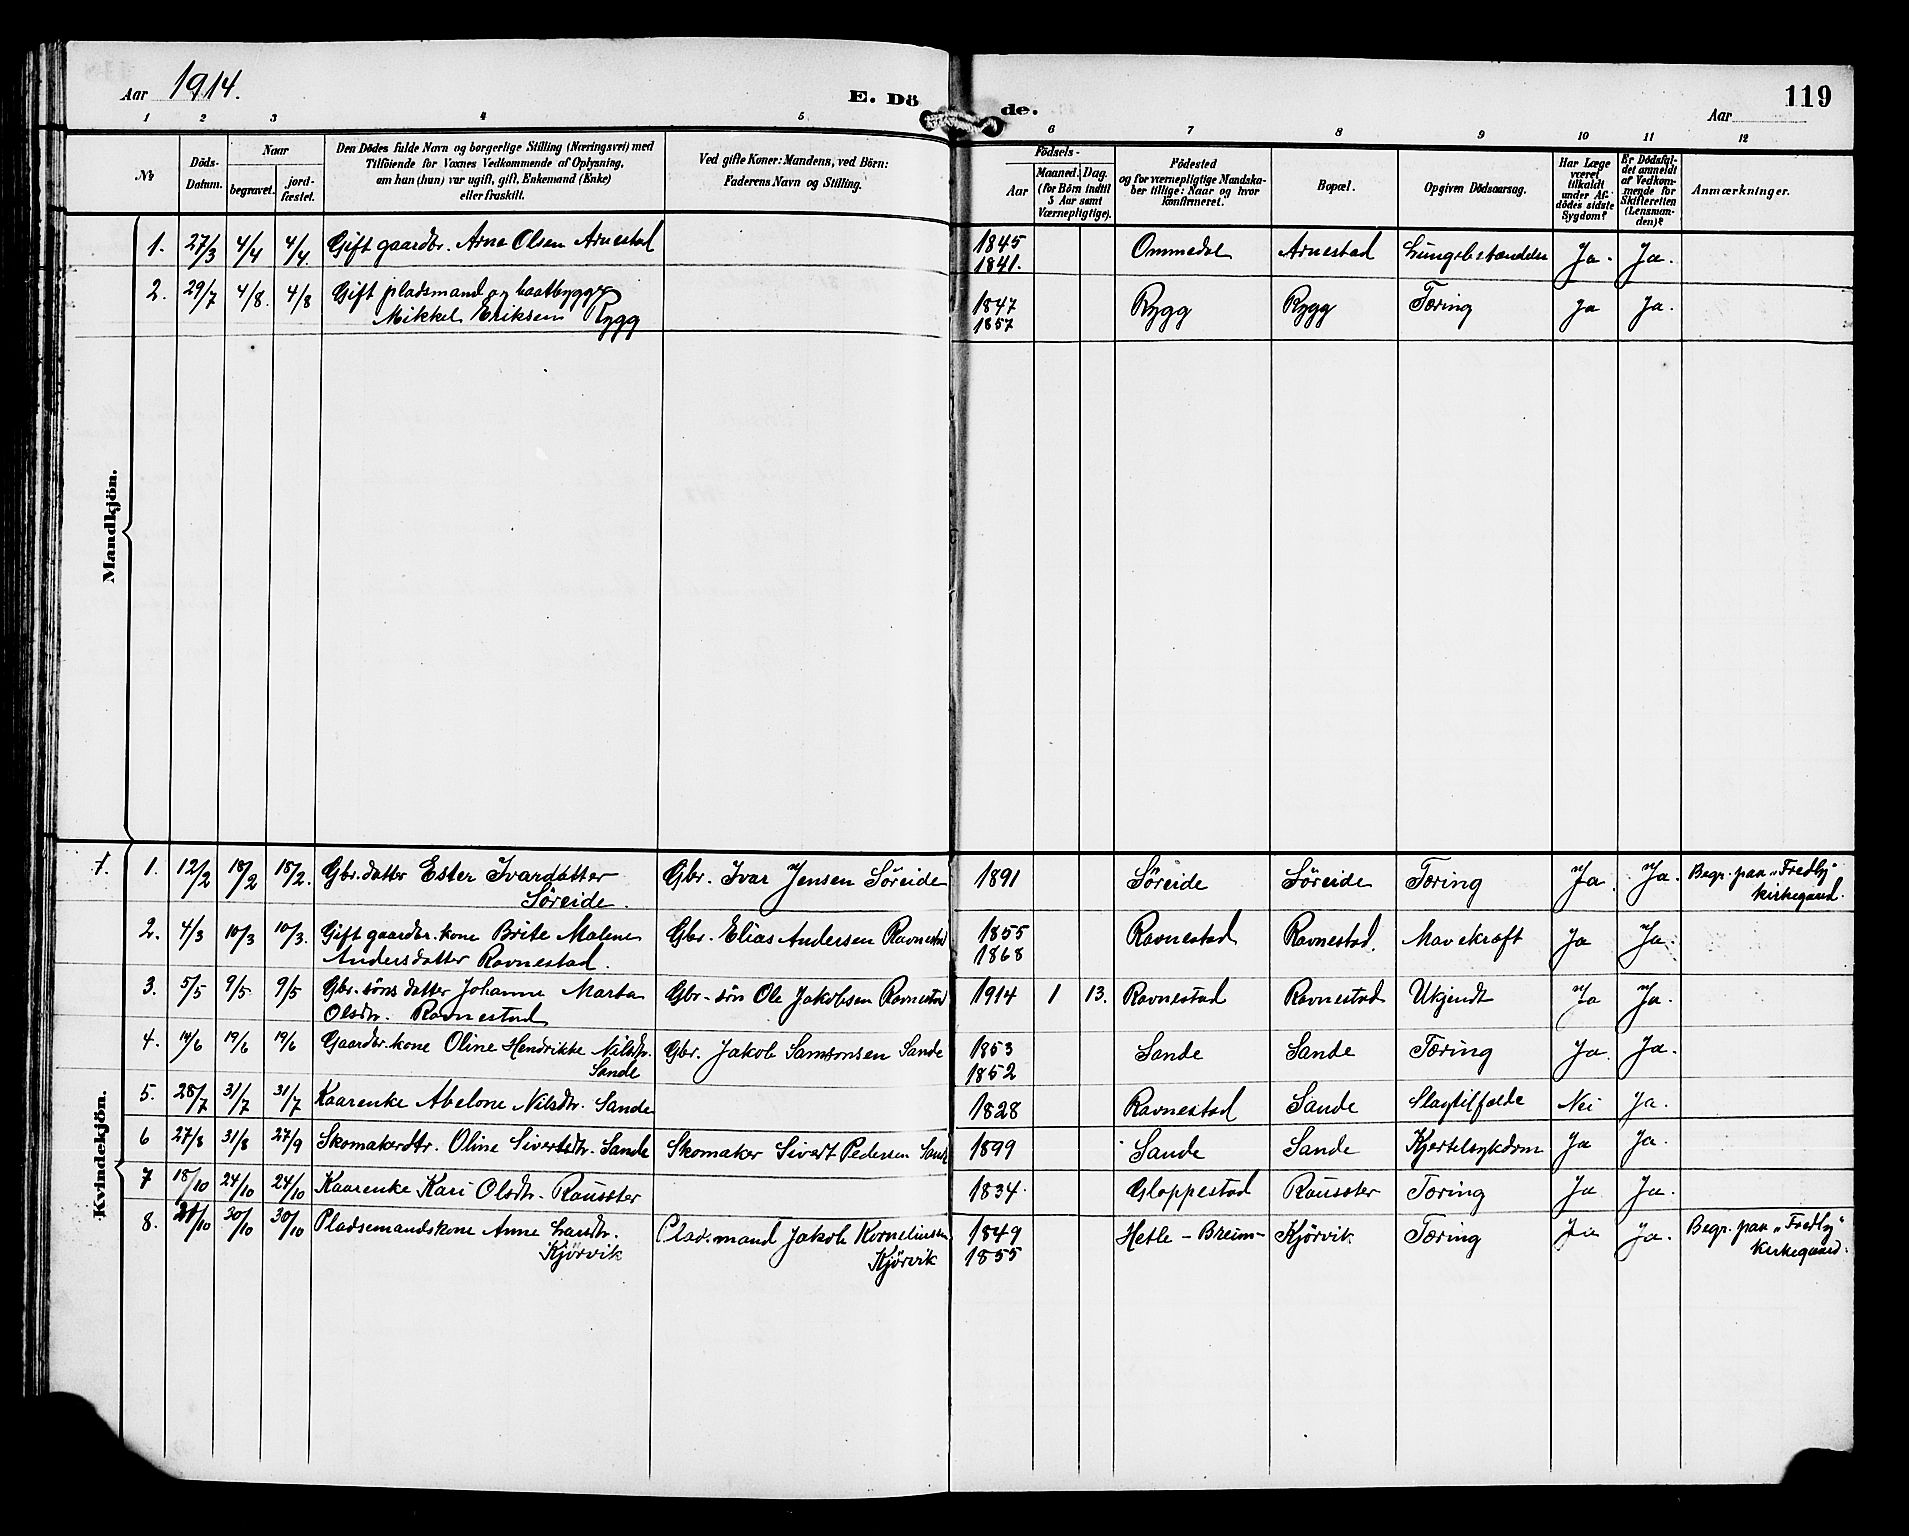 Aar 1914.
E. Döde.
Aar
119
1 2 3 4 5 6 7 8 9 10 11 12
No
Döds-Datum.
Naar
begravet.
jord-fæstet.
Den Dödes fulde Navn og borgerlige Stilling (Næringsvei) med
Tilföiende for Voxnes Vedkommende af Oplysning,
om han (hun) var ugift, gift, Enkemand (Enke)
eller fraskilt.
Ved gifte Koner: Mandens, ved Börn:
Faderens Navn og Stilling.
Födsels-
Aar
Maaned. Dag.
(for Börn indtil
5 Aar samt
Værnepligtige).
Födested
og for værnepligtige Mandska-
ber tillige: Naar og hvor
konfirmeret.
Bopæl.
Opgiven Dödsaarsag.
Har Læge
været
tilkaldt
under Af-
dödes sidste
Sygdom?
Er Dödsfal-
det anmeldt
af Vedkom-
mende for
Skifteretten
(Lensman-
den)?
Anmærkninger.
Mandkjön.
1. 27/3 4/4 4/4 Gift gaardbr. Arne Olsen Arnestad 1845 Ommedal Arnestad Lungebetændelse Ja. Ja.
1841.
2. 29/7 4/8. 4/8 Gift pladsmand og baatbygger 1847 Rygg Rygg Tæring Ja Ja.
Mikkel Eriksen Rygg 1857
Kvindekjön.
1. 1. 12/2 18/2 18/2. Gbr.datter Ester Ivardatter Gbr. Ivar Jensen Söreide 1891 Söreide Söreide Tæring Ja. Ja. Begr. paa „Fredly"
Söreide. kirkegaard.
2. 4/3 10/3 10/3. Gift gaardbr.kone Brite Malene Gbr. Elias Andersen Ravnestad 1855 Ravnestad Ravnestad. Mavekræft Ja Ja.
Andersdatter Ravnestad. 1868
3. 5/5 9/5. 9/5 Gbr.söns datter Johanne Marta Gbr.-sön Ole Jakobsen Ravnestad 1914 1 13. Ravnestad Ravnestad Ukjendt Ja Ja.
Olsdtr. Ravnestad
4. 14/6 19/6 19/6 Gaardbr.kone Oline Hendrikke Nilsdtr. Gbr. Jakob Samsonsen Sande 1853 Sande Sande Tæring Ja. Ja.
Sande 1852
5. 28/7 31/7 31/7 Kaarenke Abelone Nilsdtr. Sande 1828 Ravnestad Sande Slagtilfælde Nei Ja.
6 27/8 31/8 27/9 Skomakerdtr. Oline Sivertsdtr. Sande Skomaker Sivert Pedersen Sande 1899 Sande Sande Kjertelsykdom Ja Ja.
7 18/10 24/10 24/10 Kaarenke Kari Olsdtr. Rausster 1834. Gloppestad Rausster Tæring Ja Ja.
8. 21/10 30/10 30/10 Pladsemandskone Anne Larsdtr. Pladsmand Jakob Korneliussen 1849 Hetle - Breim - Kjörvik Tæring Ja Ja. Begr. paa „Fredly"
Kjörvik Kjörvik 1855 kirkegaard.